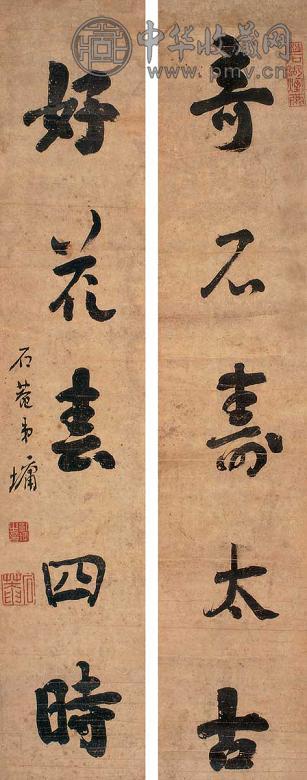 中华收藏网
www.pmv.cn
奇石壽太古
好花春四時
石菴弟墉